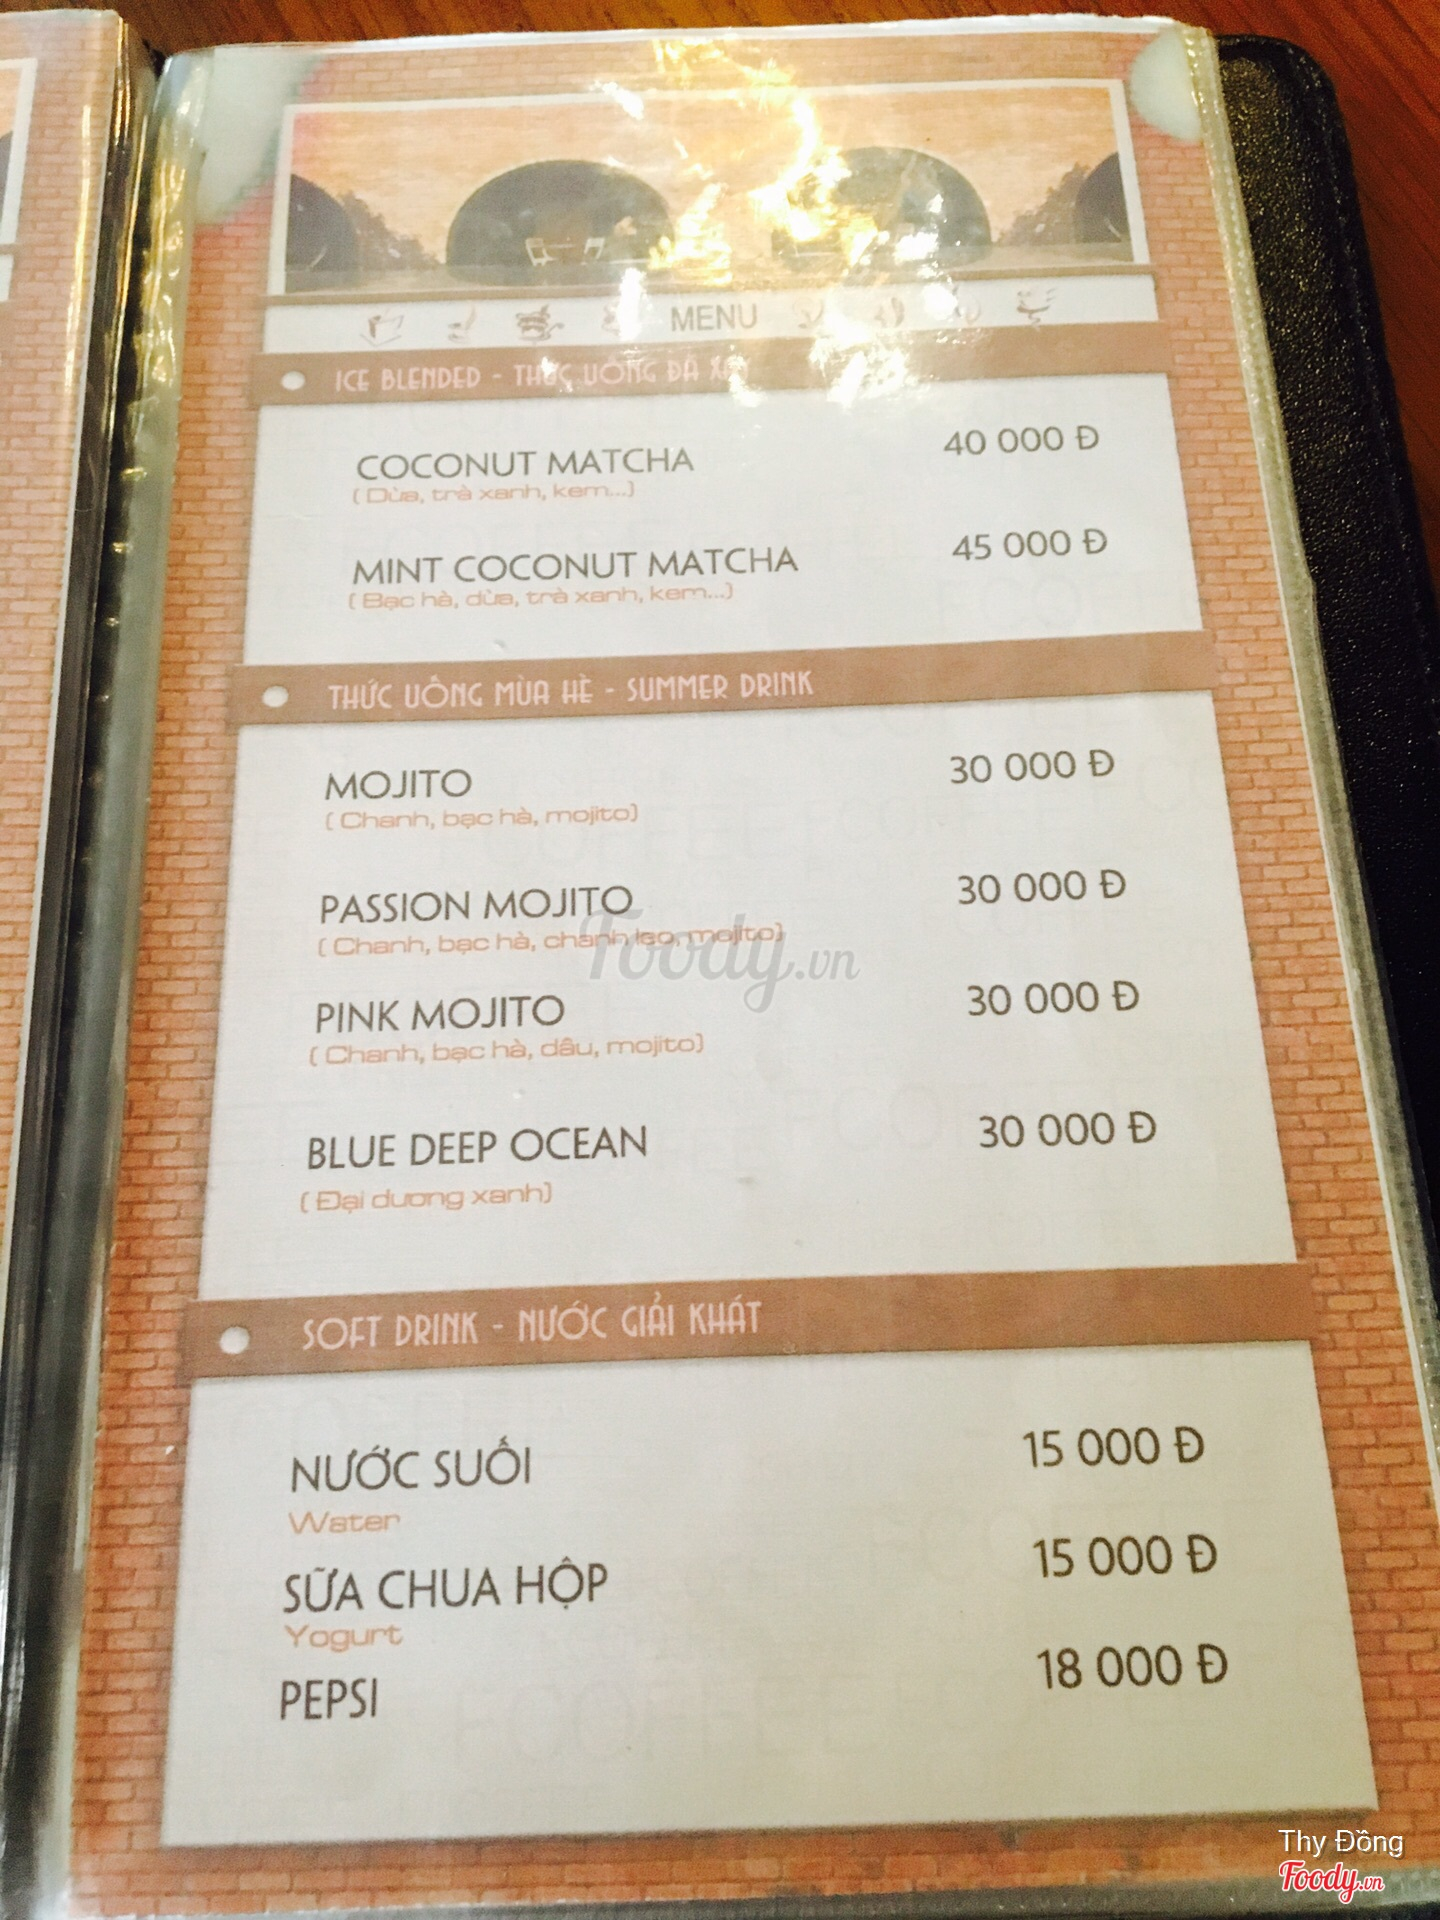 MENU
ICE BLENDED - THỨC UÔNG ĐÁ XAY
COCONUT MATCHA 40 000 Đ
( Dừa, trà xanh, kem...)
MINT COCONUT MATCHA 45 000 Đ
( Bạc hà, dừa, trà xanh, kem...)
THỨC UÔNG MÙA HÈ - SUMMER DRINK
MOJITO 30 000 Đ
( Chanh, bạc hà, mojito)
PASSION MOJITO 30 000 Đ
( Chanh, bạc hà, chanh leo, mojito)
Foody.vn
PINK MOJITO 30 000 Đ
( Chanh, bạc hà, dâu, mojito)
BLUE DEEP OCEAN 30 000 Đ
( Đại dương xanh)
SOFT DRINK - NƯỚC GIẢI KHÁT
NƯỚC SUỐI 15 000 Đ
Water
SỮA CHUA HỘP 15 000 Đ
Yogurt
PEPSI 18 000 Đ
Thy Đồng
Foody.vn